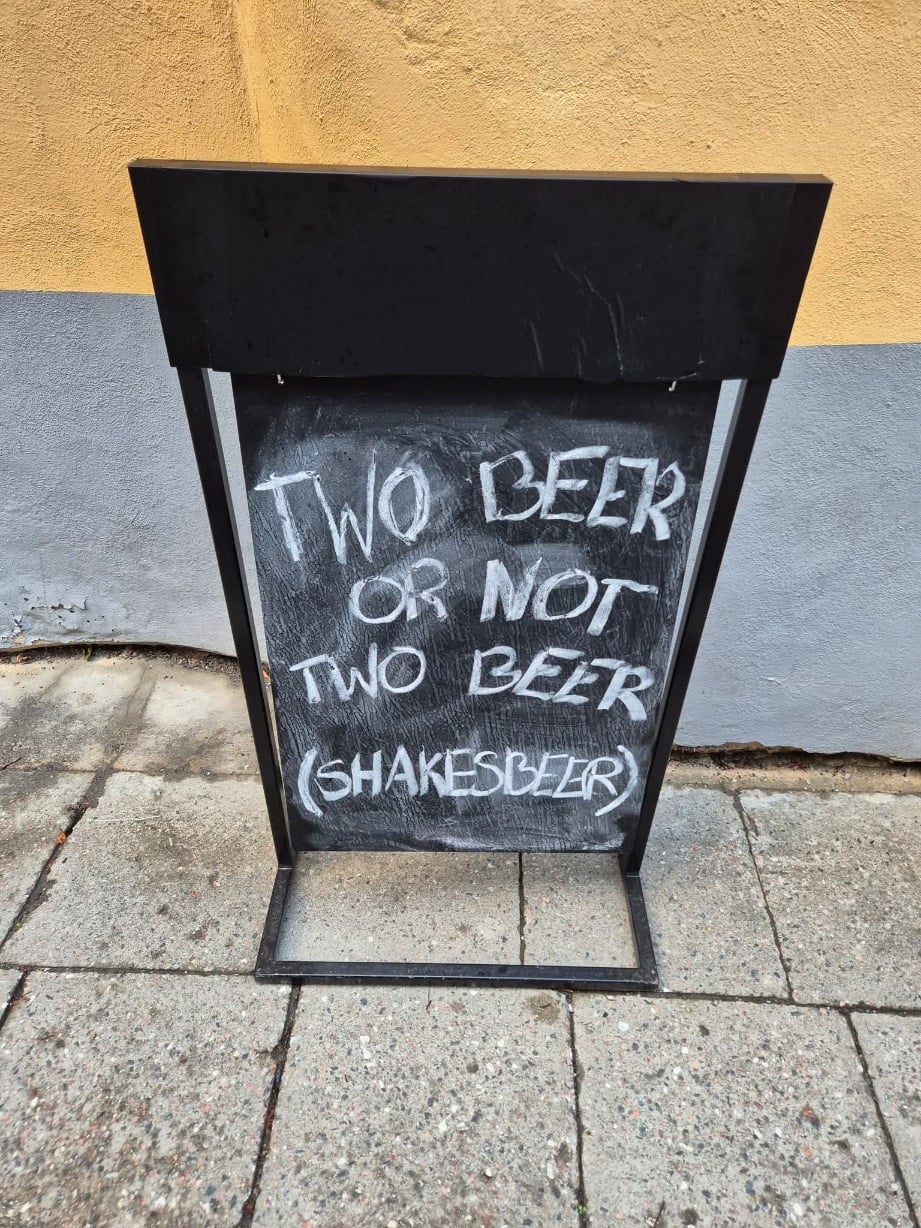 TWO BEER
OR NOT
TWO BEER
(SHAKESBEER)